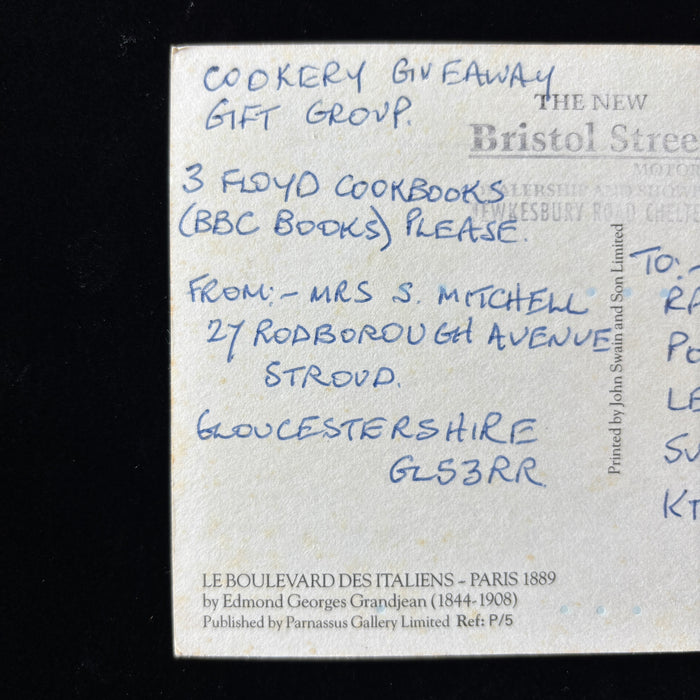 COOKERY GIVEAWAY
GIFT GROUP.
3 FLOYD COOKBOOKS
(BBC BOOKS) PLEASE.
FROM:- MRS S. MITCHELL
27 RODBOROUGH AVENUE
STROUD.
GLOUCESTERSHIRE
GL53RR
THE NEW
Bristol Stree
MOTOR
DEALERSHIP AND SHOW
TEWKESBURY ROAD CHELTE
Printed by John Swain and Son Limited
TO:-
RA
PO
LE
SU
KT
LE BOULEVARD DES ITALIENS – PARIS 1889
by Edmond Georges Grandjean (1844-1908)
Published by Parnassus Gallery Limited Ref: P/5